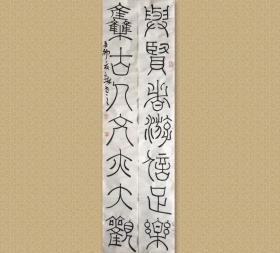 與賢者游信足樂
集古人文亦大觀